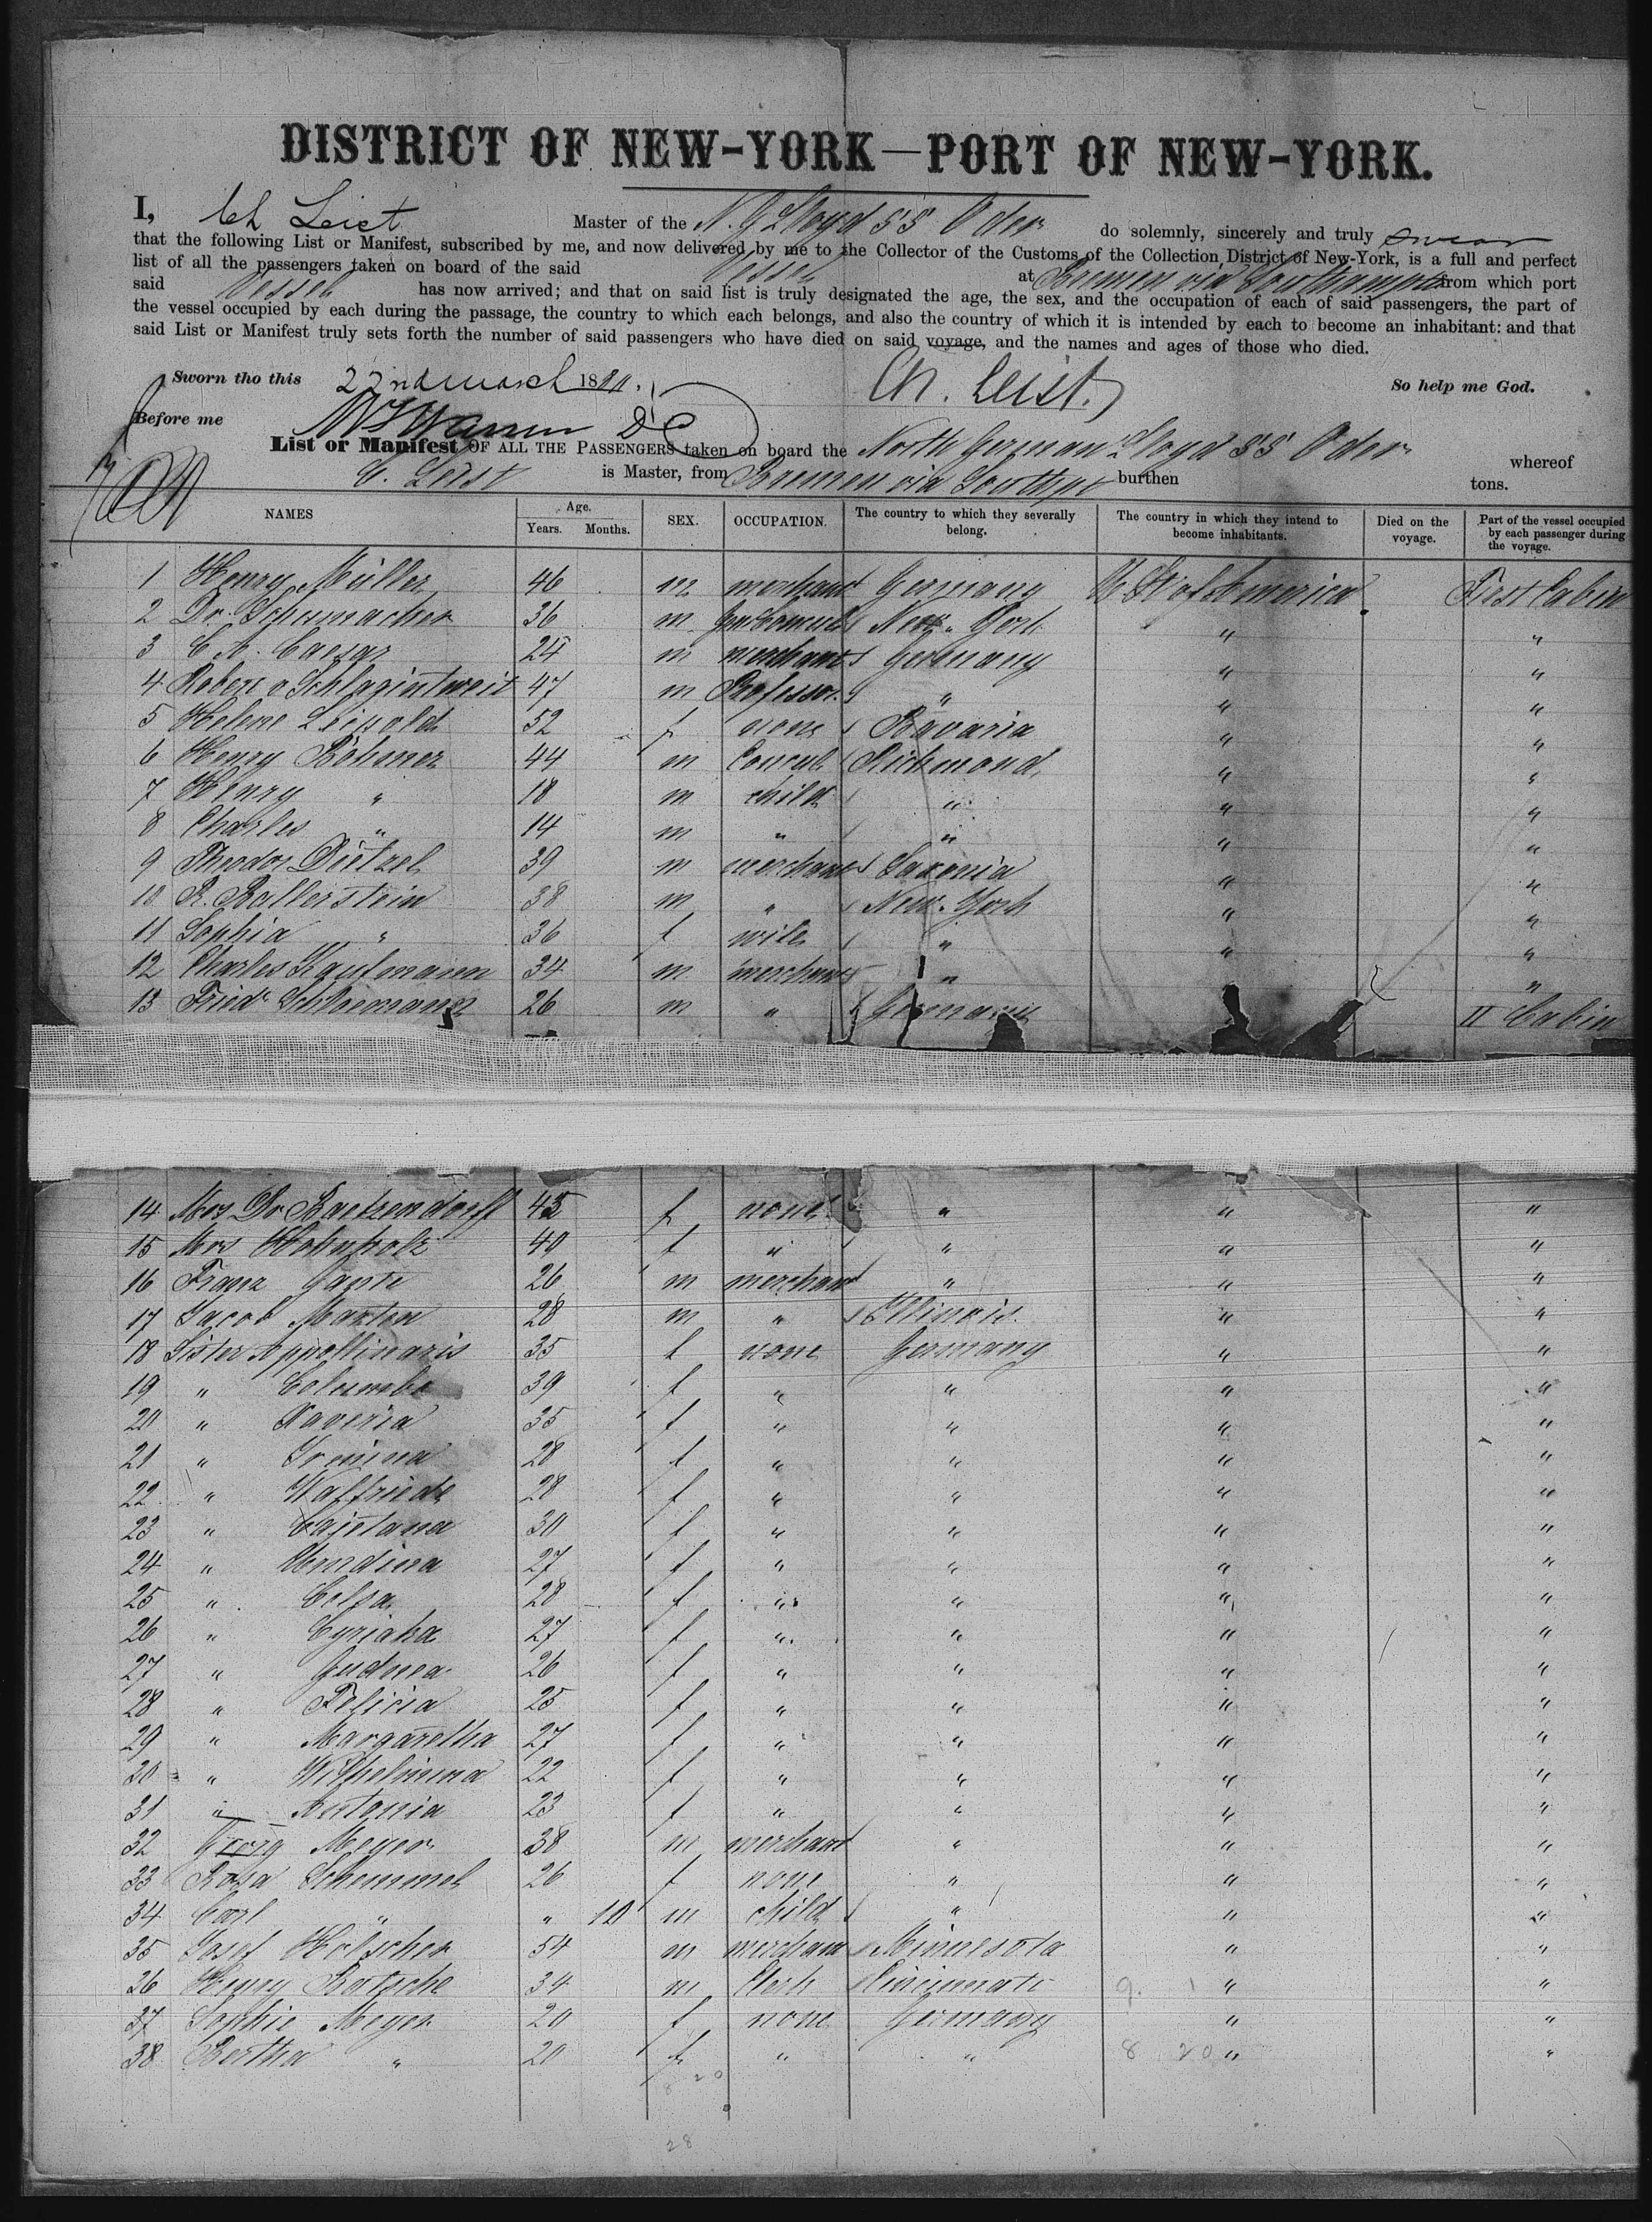 DISTRICT OF NEW-YORK—PORT OF NEW-YORK.
I, Ch Leist Master of the N. G Lloyd SS Oder do solemnly, sincerely and truly swear
that the following List or Manifest, subscribed by me, and now delivered by me to the Collector of the Customs of the Collection District of New-York, is a full and perfect
list of all the passengers taken on board of the said Vessel at Bremen via Southampton from which port
said Vessel has now arrived; and that on said list is truly designated the age, the sex, and the occupation of each of said passengers, the part of
the vessel occupied by each during the passage, the country to which each belongs, and also the country of which it is intended by each to become an inhabitant: and that
said List or Manifest truly sets forth the number of said passengers who have died on said voyage, and the names and ages of those who died.
Sworn tho this 22nd March 18 Ch. Leist. So help me God.
Before me
List or Manifest OF ALL THE PASSENGERS taken on board the North German Lloyd SS Oder whereof
C. Leist is Master, from Bremen via Southptn burthen tons.
NAMES Age. Years. Months. SEX. OCCUPATION. The country to which they severally belong. The country in which they intend to become inhabitants. Died on the voyage. Part of the vessel occupied by each passenger during the voyage.
1 Henry Müller 46 m merchant Germany U. St. of America First Cabin
2 Dr. Schumacher 36 m New-York " "
3 C. A. Caesar 24 m merchant Germany " "
4 Robert v Schlagintweit 47 m Professor " " "
5 Helene Leipold 52 f none Bavaria " "
6 Henry Böhmer 44 m Consul Richmond " "
7 Henry " 18 m child " " "
8 Charles " 14 m " " " "
9 Theodor Dietzel 39 m merchant Saxonia " "
10 R. Ballerstein 38 m " New-York " "
11 Sophia " 36 f wife " " "
12 Charles Kaufmann 34 m merchant " " "
13 Friedr Schliemann 26 m " Germany II Cabin
14 Mrs Dr Baetzendorff 45 f none " " "
15 Mrs 40 f " " " "
16 Franz 26 m merchant " " "
17 Jacob Marten 28 m " Illinois. " "
18 Sister Appollinaris 35 f none Germany " "
19 " Columba 39 f " " " "
20 " Xaveria 35 f " " " "
21 " Irmina 28 f " " " "
22 " Walfriede 28 f " " " "
23 " Cajetana 30 f " " " "
24 " 27 f " " " "
25 " Celsa 28 f " " " "
26 " Cyriaka 27 f " " " "
27 " Gudina 26 f " " " "
28 " Felicia 25 f " " " "
29 " Margaretha 27 f " " " "
30 " Wilhelmina 22 f " " " "
31 " Antonia 23 f " " " "
32 Georg Meyer 38 m merchant " " "
33 Rosa Schemmel 26 f none " " "
34 Carl " " 10 m child " " "
35 Josef Hölscher 54 m merchant Minnesota " "
36 Henry Bötsche 34 m Clerk Cincinnati " "
37 Sophie Meyer 20 f none Germany " "
38 Bertha " 20 f " " " "
8 20
8 20
28